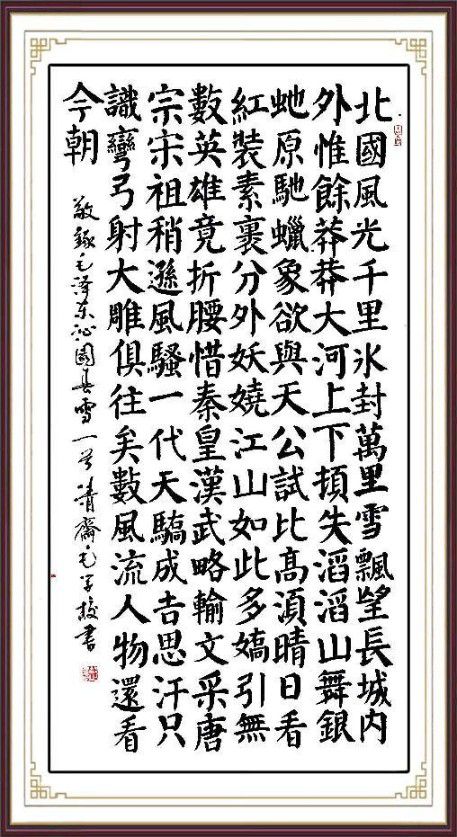 北國風光千里氷封萬里雪飄望長城内
外惟餘莽莽大河上下頓失滔滔山舞銀
虵原馳蠟象欲與天公試比高湏晴日看
紅裝素裹分外妖嬈江山如此多嬌引無
數英雄竟折腰惜秦皇漢武略輸文采唐
宗宋祖稍遜風騷一代天驕成吉思汗只
識彎弓射大雕俱往矣數風流人物還看
今朝
敬錄毛泽东沁園春雪一首 齋毛書